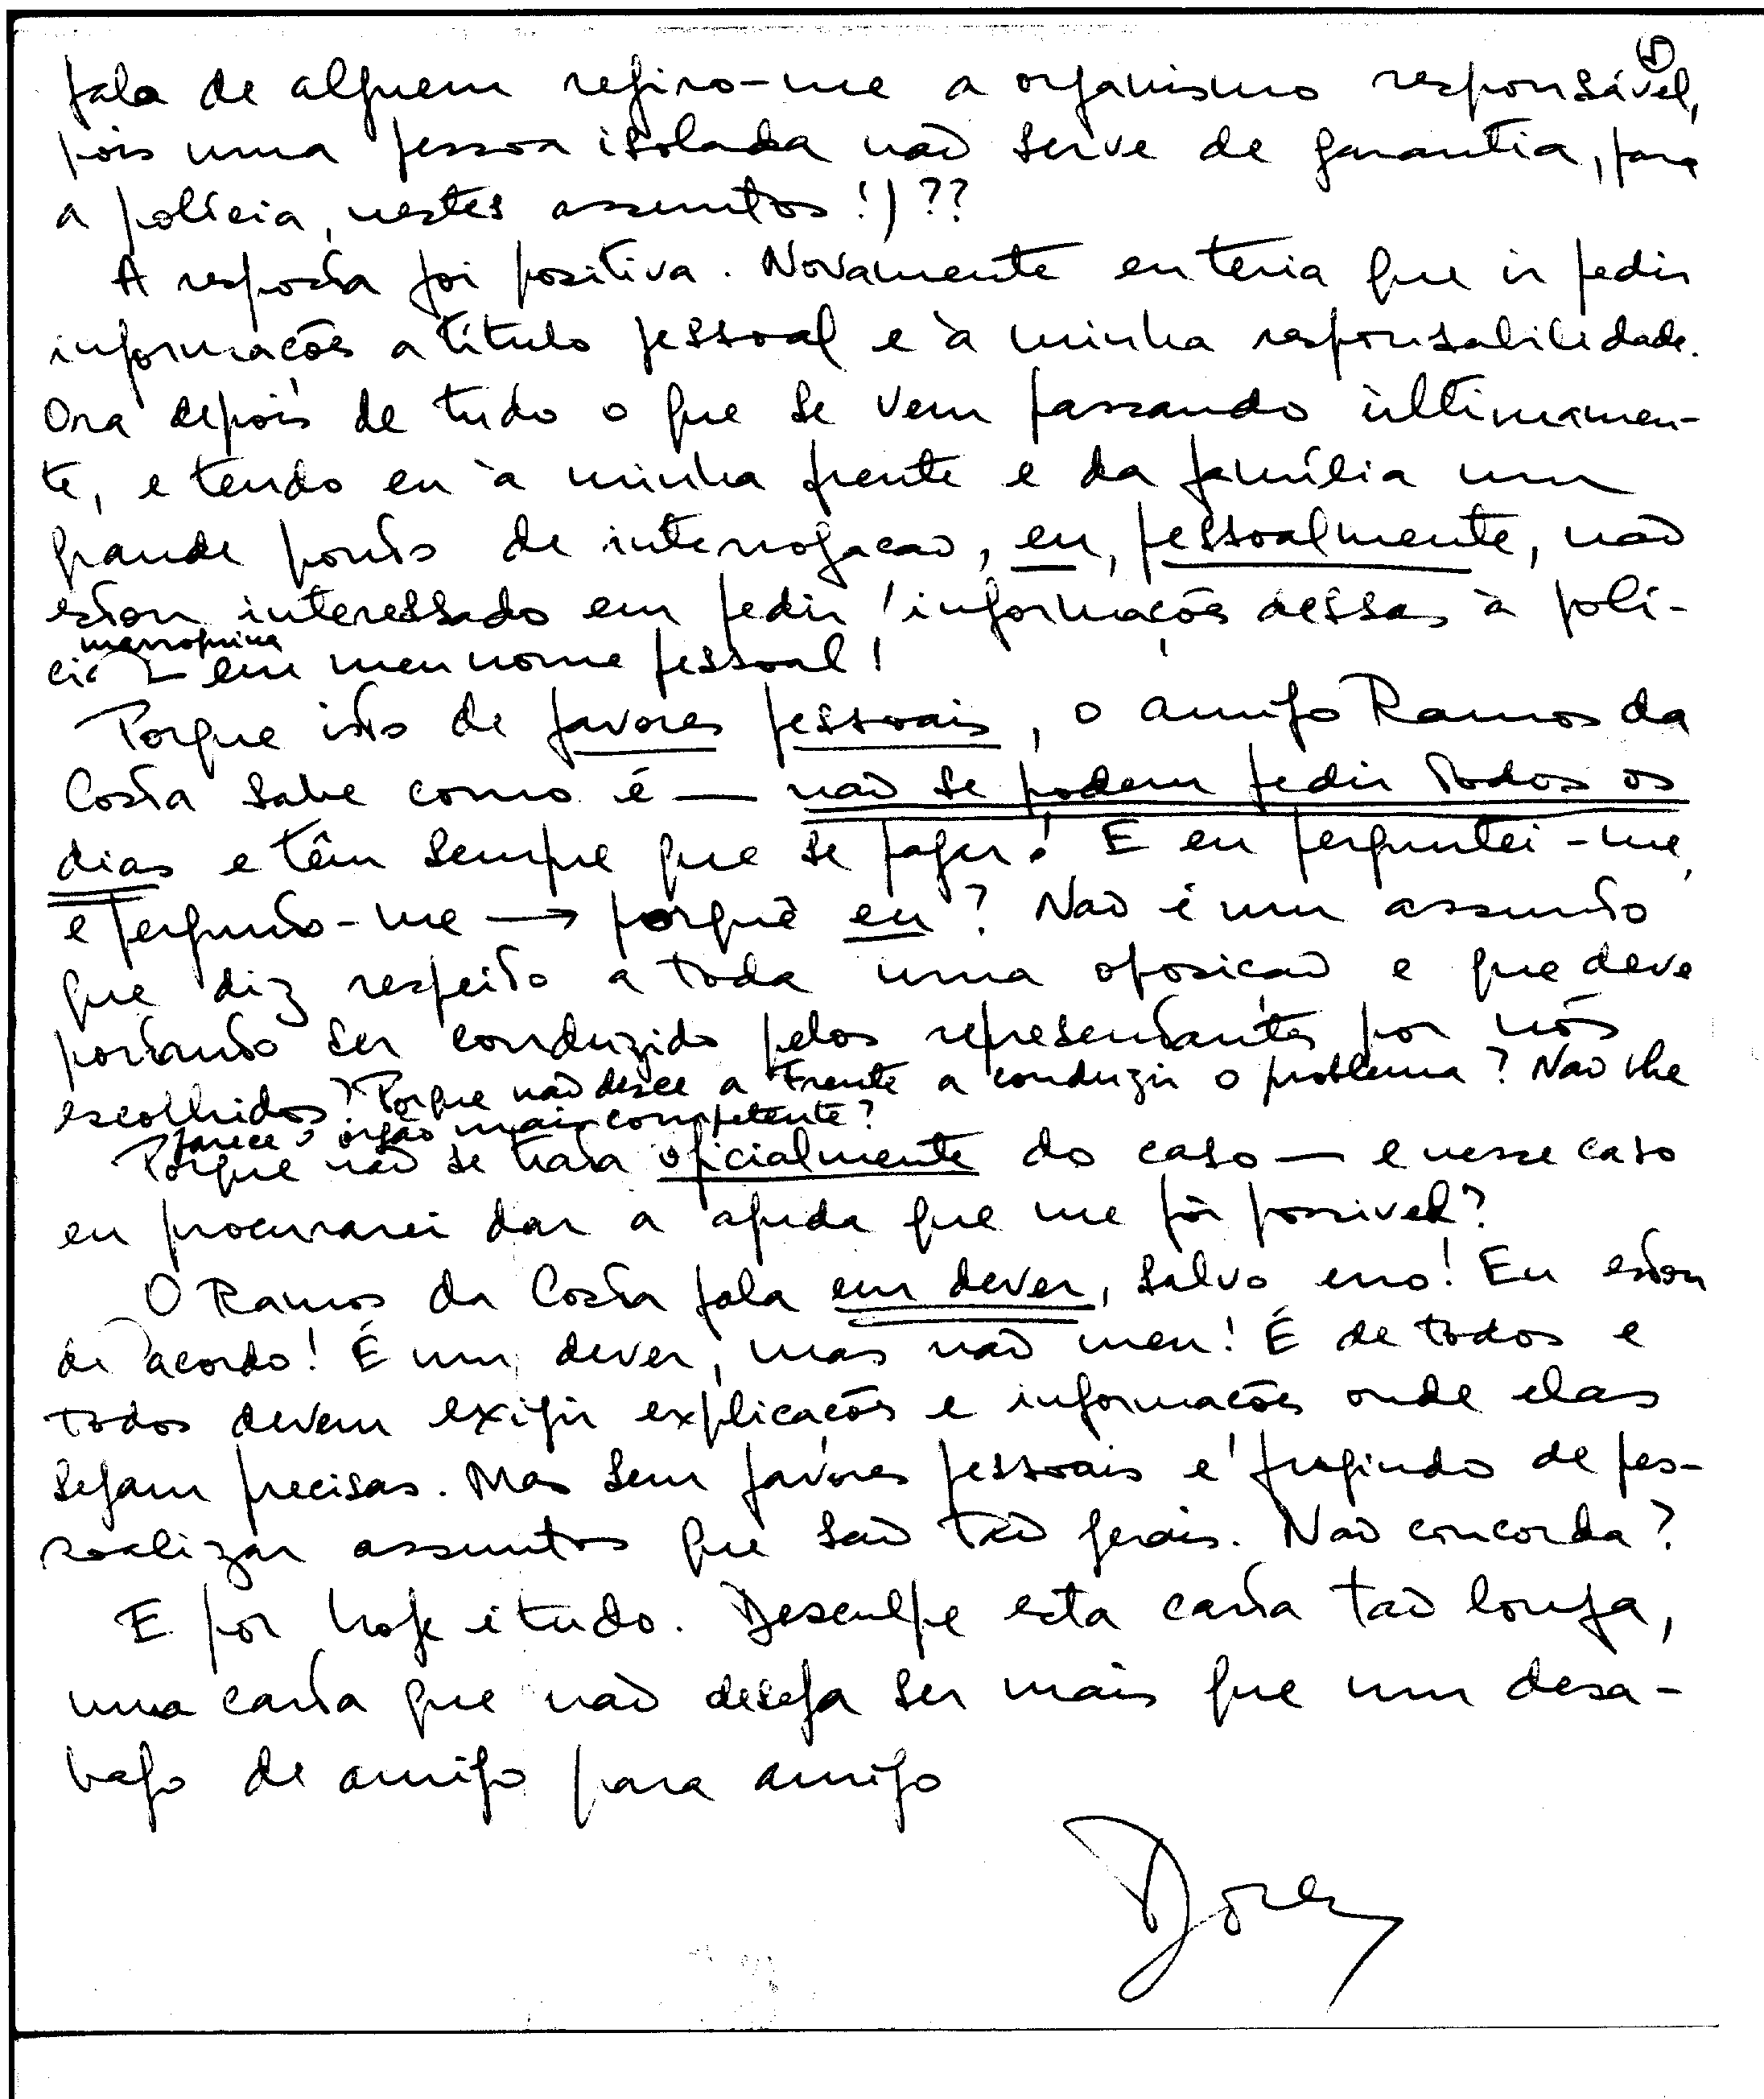 5
fala de alguem refiro-me a organismo responsável,
pois uma pessoa isolada não serve de garantia, para
a polícia, nestes assuntos!)??
A resposta foi positiva. Novamente eu teria que ir pedir
informações a título pessoal e à minha responsabilidade.
Ora depois de tudo o que se vem passando ùltimamen-
te, e tendo eu à minha frente e da família um
grande ponto de interrogação, eu, pessoalmente, não
estou interessado em pedir informações dessas à polí-
marroquina
cia — em meu nome pessoal!
Porque isto de favores pessoais, o amigo Ramos da
Costa sabe como é — não se podem pedir todos os
dias e têm sempre que se pagar! E eu perguntei-me,
e pergunto-me → porquê eu? Não é um assunto
que diz respeito a toda uma oposição e que deve
portanto ser conduzido pelos representantes por nós
escolhidos? Porque não desce a Frente a conduzir o problema? Não lhe
parece o órgão mais competente?
Porque não se trata oficialmente do caso — e nesse caso
eu procurarei dar a ajuda que me fôr possivel?
O Ramos da Costa fala em dever, salvo erro! Eu estou
de acordo! É um dever, mas não meu! É de todos e
todos devem exigir explicações e informações onde elas
sejam precisas. Mas sem favores pessoais e fugindo de pes-
soalizar assuntos que são tão gerais. Não concorda?
E por hoje é tudo. Desculpe esta carta tão longa,
uma carta que não deseja ser mais que um desa-
bafo de amigo para amigo